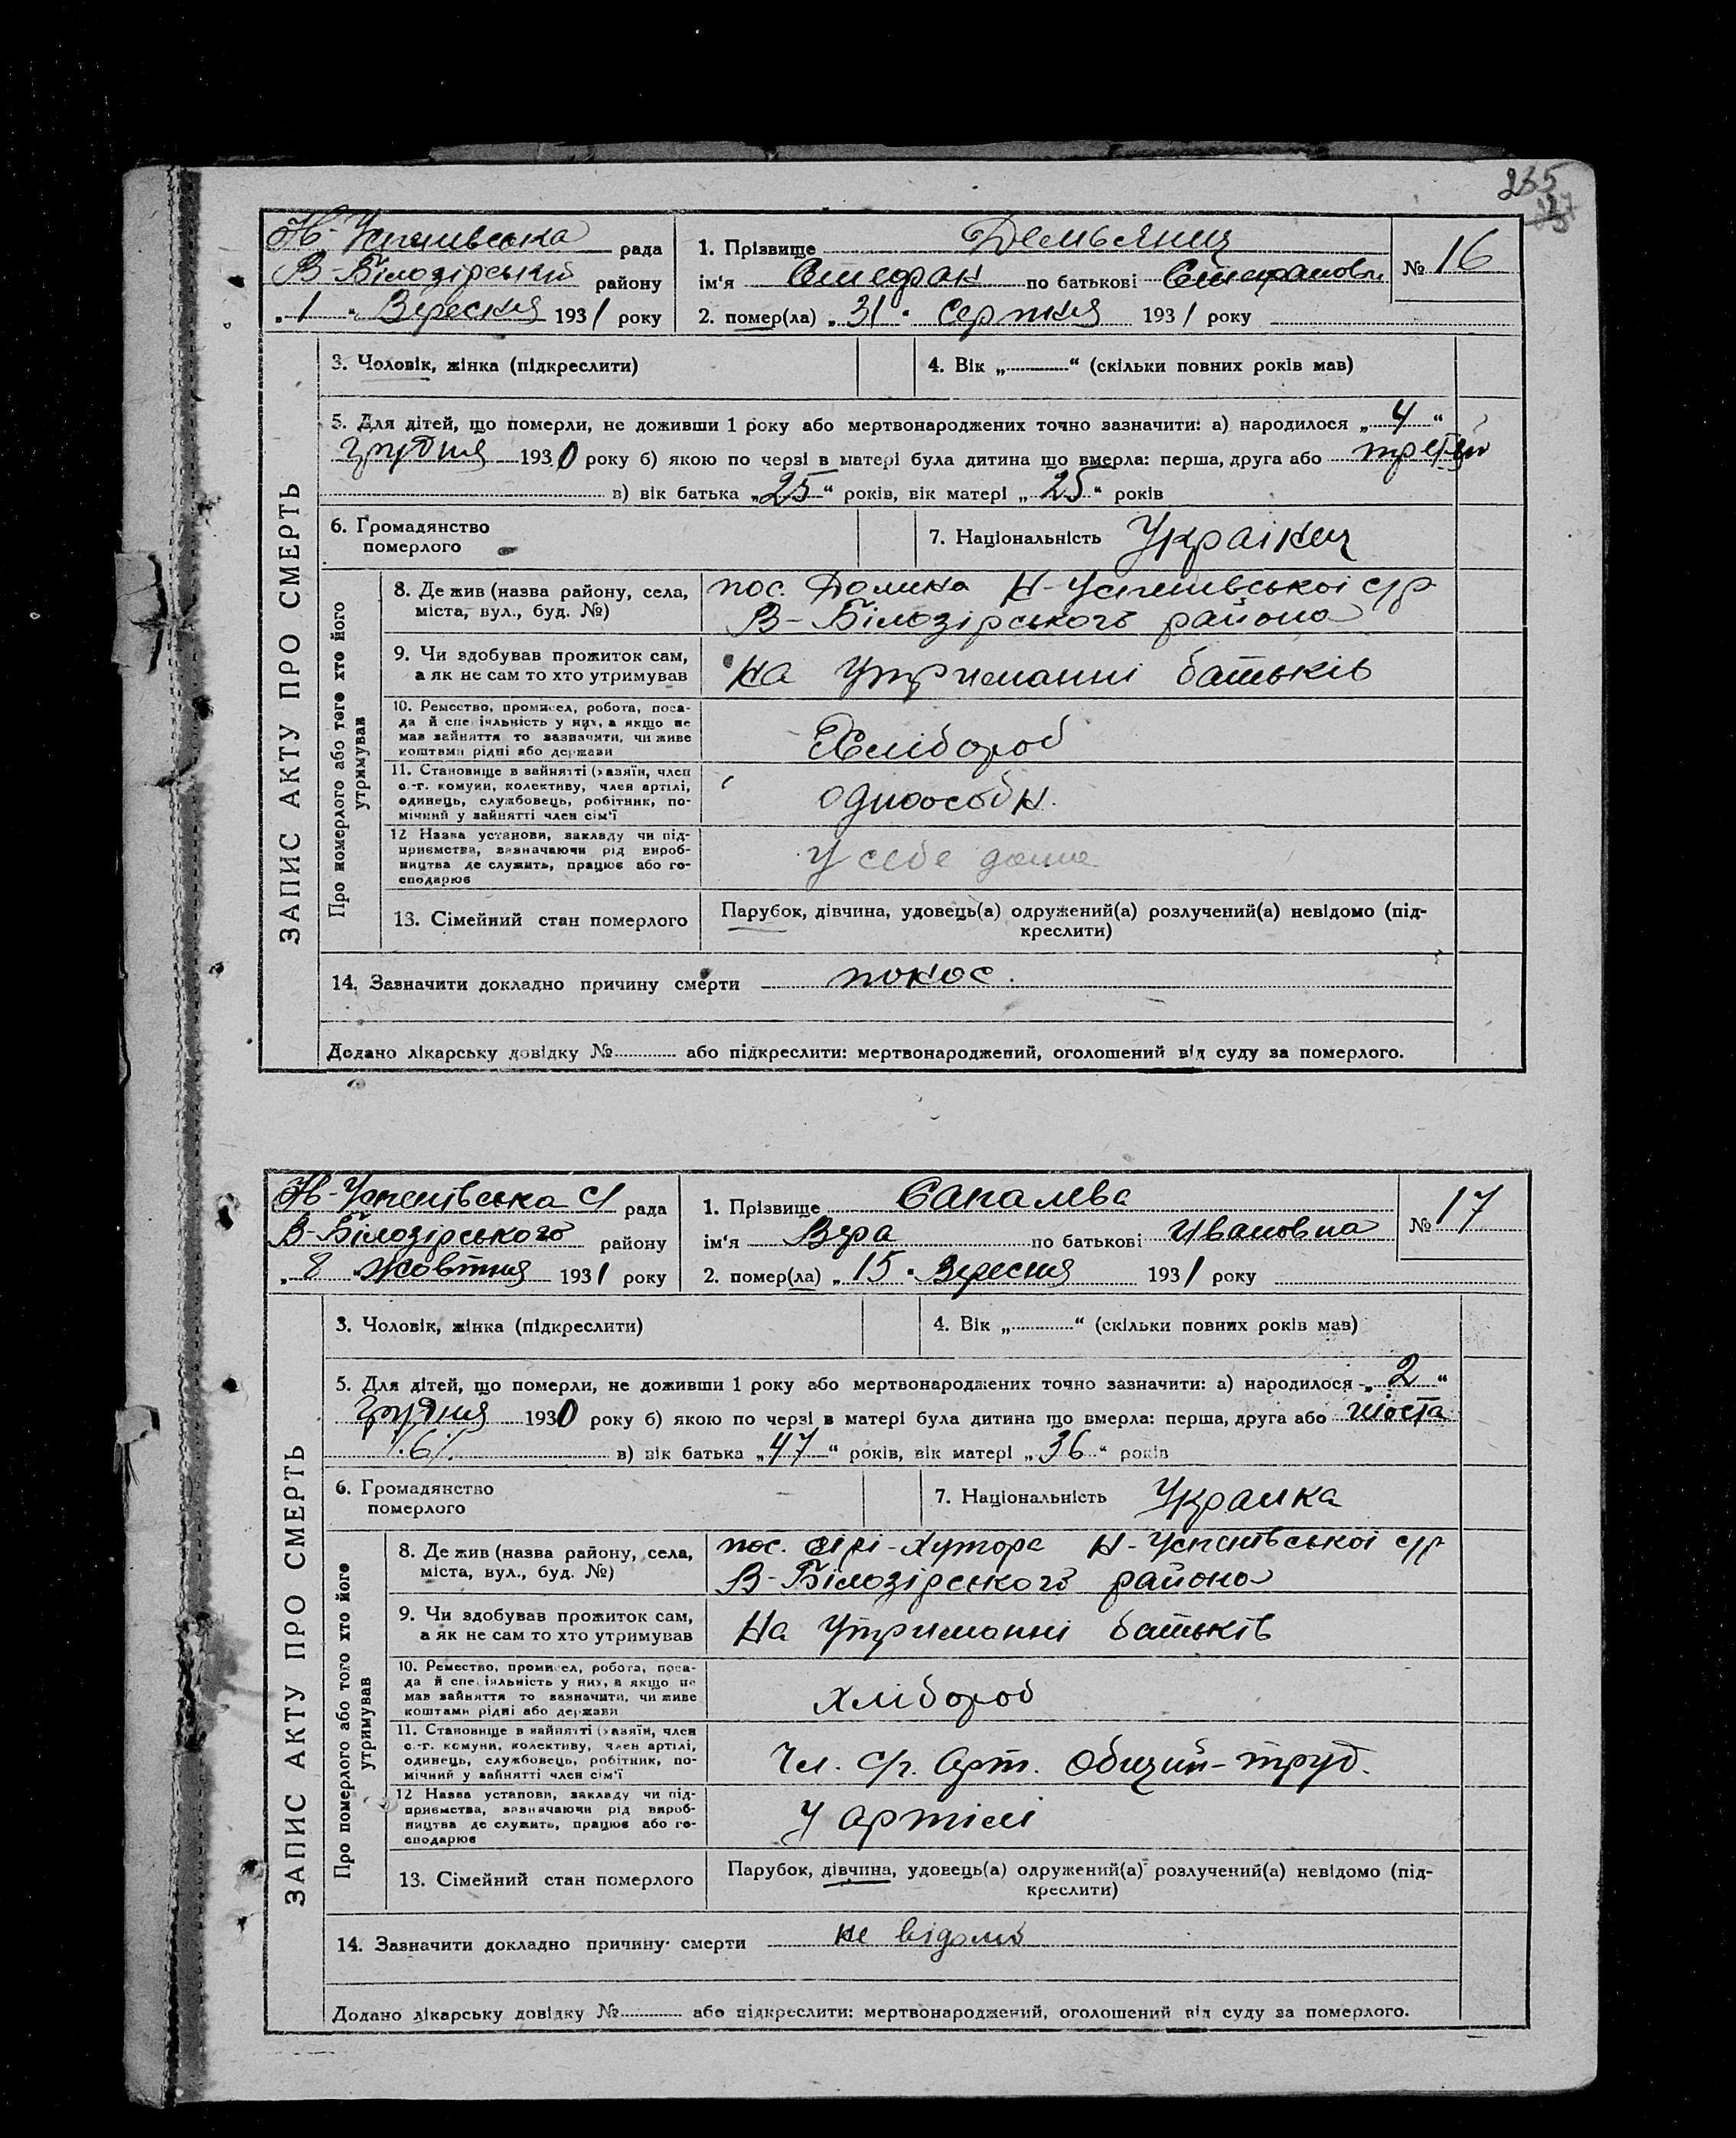 265
Н-Успенівська рада
В-Білозірський району
„1“ Вересня 1931 року
1. Прізвище Демьянец
ім'я Стефан по батькові Стефанови
2. помер(ла) „31“ Серпня 1931 року
№ 16
ЗАПИС АКТУ ПРО СМЕРТЬ
3. Чоловік, жінка (підкреслити)
4. Вік „ “ (скільки повних років мав)
5. Для дітей, що померли, не доживши 1 року або мертвонароджених точно зазначити: а) народилося „4“
грудня 1930 року б) якою по черзі в матері була дитина що вмерла: перша, друга або третьїй
в) вік батька „25“ років, вік матері „25“ років
6. Громадянство
померлого
7. Національність Українец
Про померлого або того хто його
утримував
8. Де жив (назва району, села,
міста, вул., буд. №)
пос. Долина Н-Успенівської с/р
В-Білозірського района
9. Чи здобував прожиток сам,
а як не сам то хто утримував
На утриманні батьків
10. Ремество, промисел, робота, поса-
да й спеціяльність у них, а якщо не
мав зайняття то зазначити, чи живе
коштами рідні або держави
Хлібороб
11. Становище в зайнятті (хазяїн, член
с.-г. комуни, колективу, член артілі,
одинець, службовець, робітник, по-
мічний у зайнятті член сім'ї
одноособн.
12 Назва установи, закладу чи під-
приємства, зазначаючи рід вироб-
ництва де служить, працює або го-
сподарює
у себе дома
13. Сімейний стан померлого
Парубок, дівчина, удовець(а) одружений(а) розлучений(а) невідомо (під-
креслити)
14. Зазначити докладно причину смерти понос.
Додано лікарську довідку № або підкреслити: мертвонароджений, оголошений від суду за померлого.
Н-Успенівська с/ рада
В-Білозірського району
„8“ жовтня 1931 року
1. Прізвище Сапалева
ім'я Вера по батькові Ивановна
2. помер(ла) „15“ Вересня 1931 року
№ 17
ЗАПИС АКТУ ПРО СМЕРТЬ
3. Чоловік, жінка (підкреслити)
4. Вік „ “ (скільки повних років мав)
5. Для дітей, що померли, не доживши 1 року або мертвонароджених точно зазначити: а) народилося „2“
грудня 1930 року б) якою по черзі в матері була дитина що вмерла: перша, друга або шоста
/6/. в) вік батька „47“ років, вік матері „36“ років
6. Громадянство
померлого
7. Національність Украинка
Про померлого або того хто його
утримував
8. Де жив (назва району, села,
міста, вул., буд. №)
пос. Сірі-Хутора Н-Успенівської с/р
В-Білозірського района
9. Чи здобував прожиток сам,
а як не сам то хто утримував
На утриманні батьків
10. Ремество, промисел, робота, поса-
да й спеціяльність у них, а якщо не
мав зайняття то зазначити, чи живе
коштами рідні або держави
хлібороб
11. Становище в зайнятті (хазяїн, член
с.-г. комуни, колективу, член артілі,
одинець, службовець, робітник, по-
мічний у зайнятті член сім'ї
Чл. с/г. Арт. Общий-труд.
12 Назва установи, закладу чи під-
приємства, зазначаючи рід вироб-
ництва де служить, працює або го-
сподарює
У артілі
13. Сімейний стан померлого
Парубок, дівчина, удовець(а) одружений(а) розлучений(а) невідомо (під-
креслити)
14. Зазначити докладно причину смерти не відомо
Додано лікарську довідку № або підкреслити: мертвонароджений, оголошений від суду за померлого.